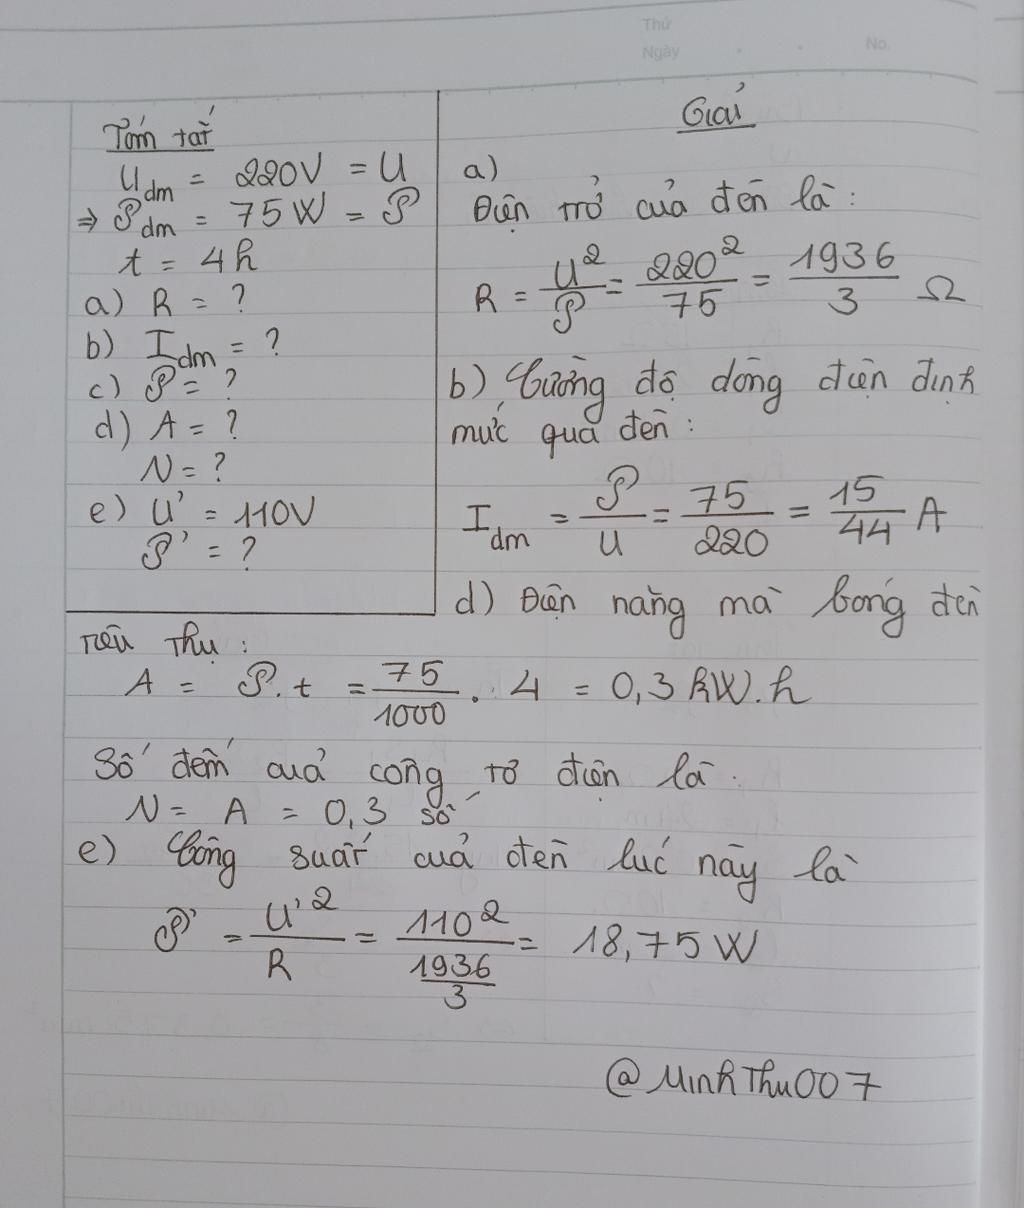 Thứ
Ngày . . No.
Tóm tắt
U_dm = 220V = U
⇒ P_dm = 75W = P
t = 4h
a) R = ?
b) I_dm = ?
c) P = ?
d) A = ?
N = ?
e) U' = 110V
P' = ?
Giải
a)
Điện trở của đèn là:
R = U²/P = 220²/75 = 1936/3 Ω
b) Cường độ dòng điện định
mức qua đèn:
I_dm = P/U = 75/220 = 15/44 A
d) Điện năng mà bóng đèn
tiêu thụ:
A = P.t = 75/1000 . 4 = 0,3 kW.h
Số đếm của công tơ điện là:
N = A = 0,3 số
e) Công suất của đèn lúc này là
P' = U'²/R = 110²/(1936/3) = 18,75 W
@MinhThu007